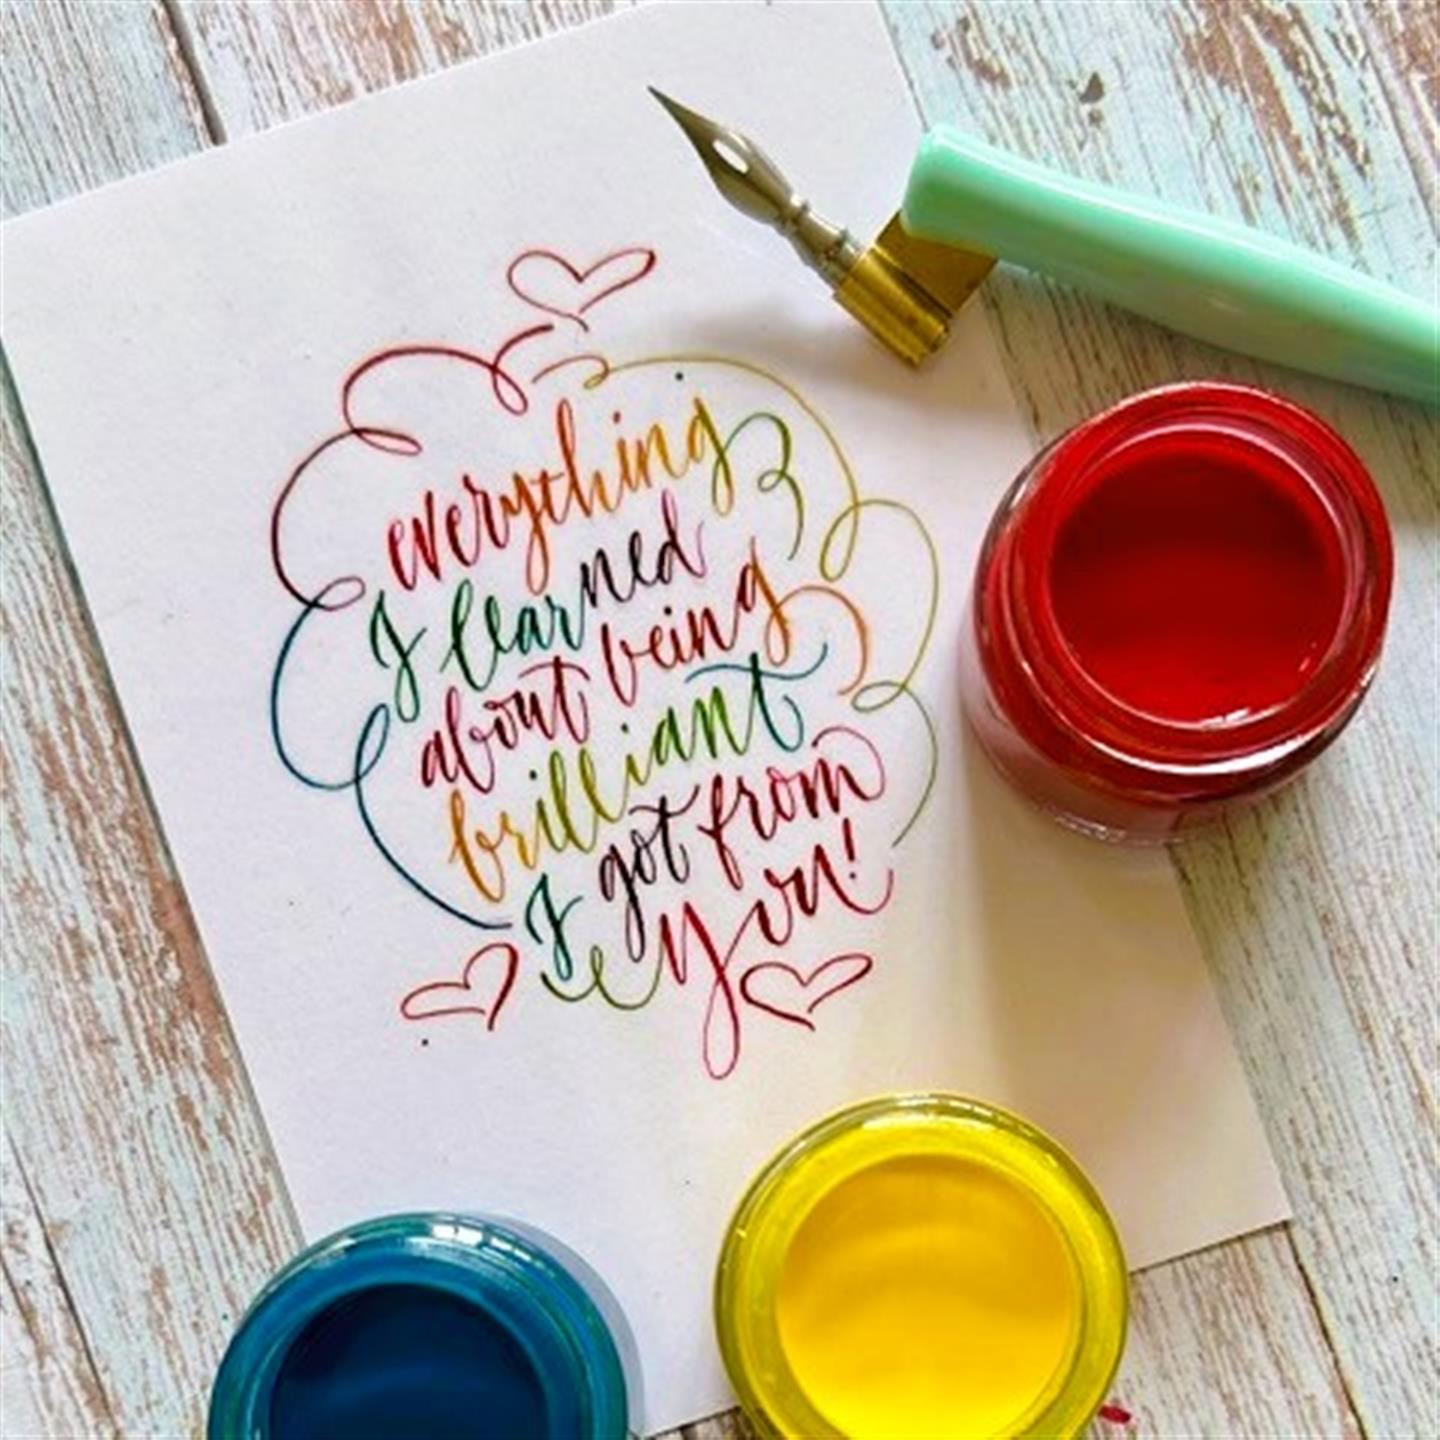 everything
I learned
about being
brilliant
I got from
you!